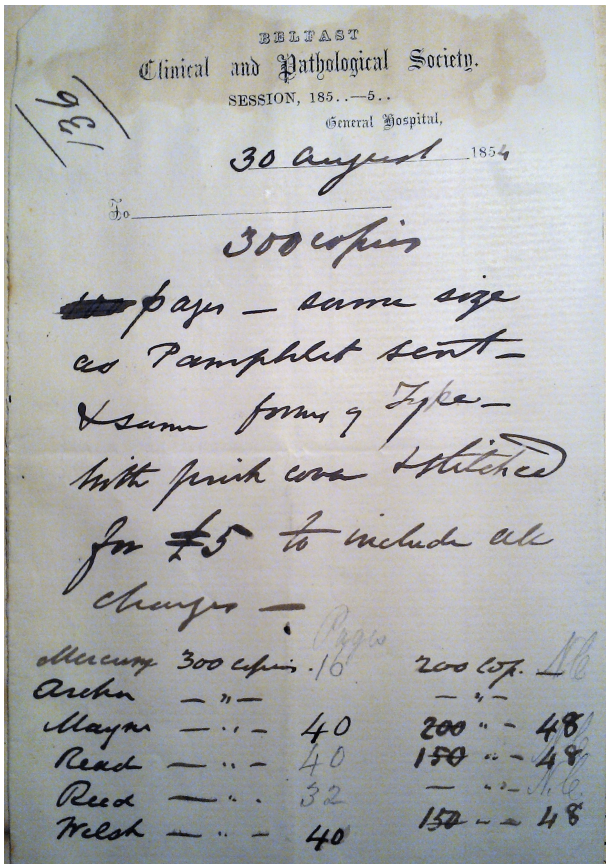 BELFAST
Clinical and Pathological Society.
SESSION, 185..—5..
General Hospital,
136
30 August 1854
To
300 copies
pages — same size
as Pamphlet sent —
& same form of Type —
with pink cover & stitched
for £5 to include all
charges —
Pages
Mercury 300 copies. 16 200 cop. — N.C
Archer — " — — " —
Mayne — " — 40 200 " — 48
Read — " — 40 150 " — 48
Reed — " . 32 — " — N.C.
Welsh — " — 40 150 — — 48